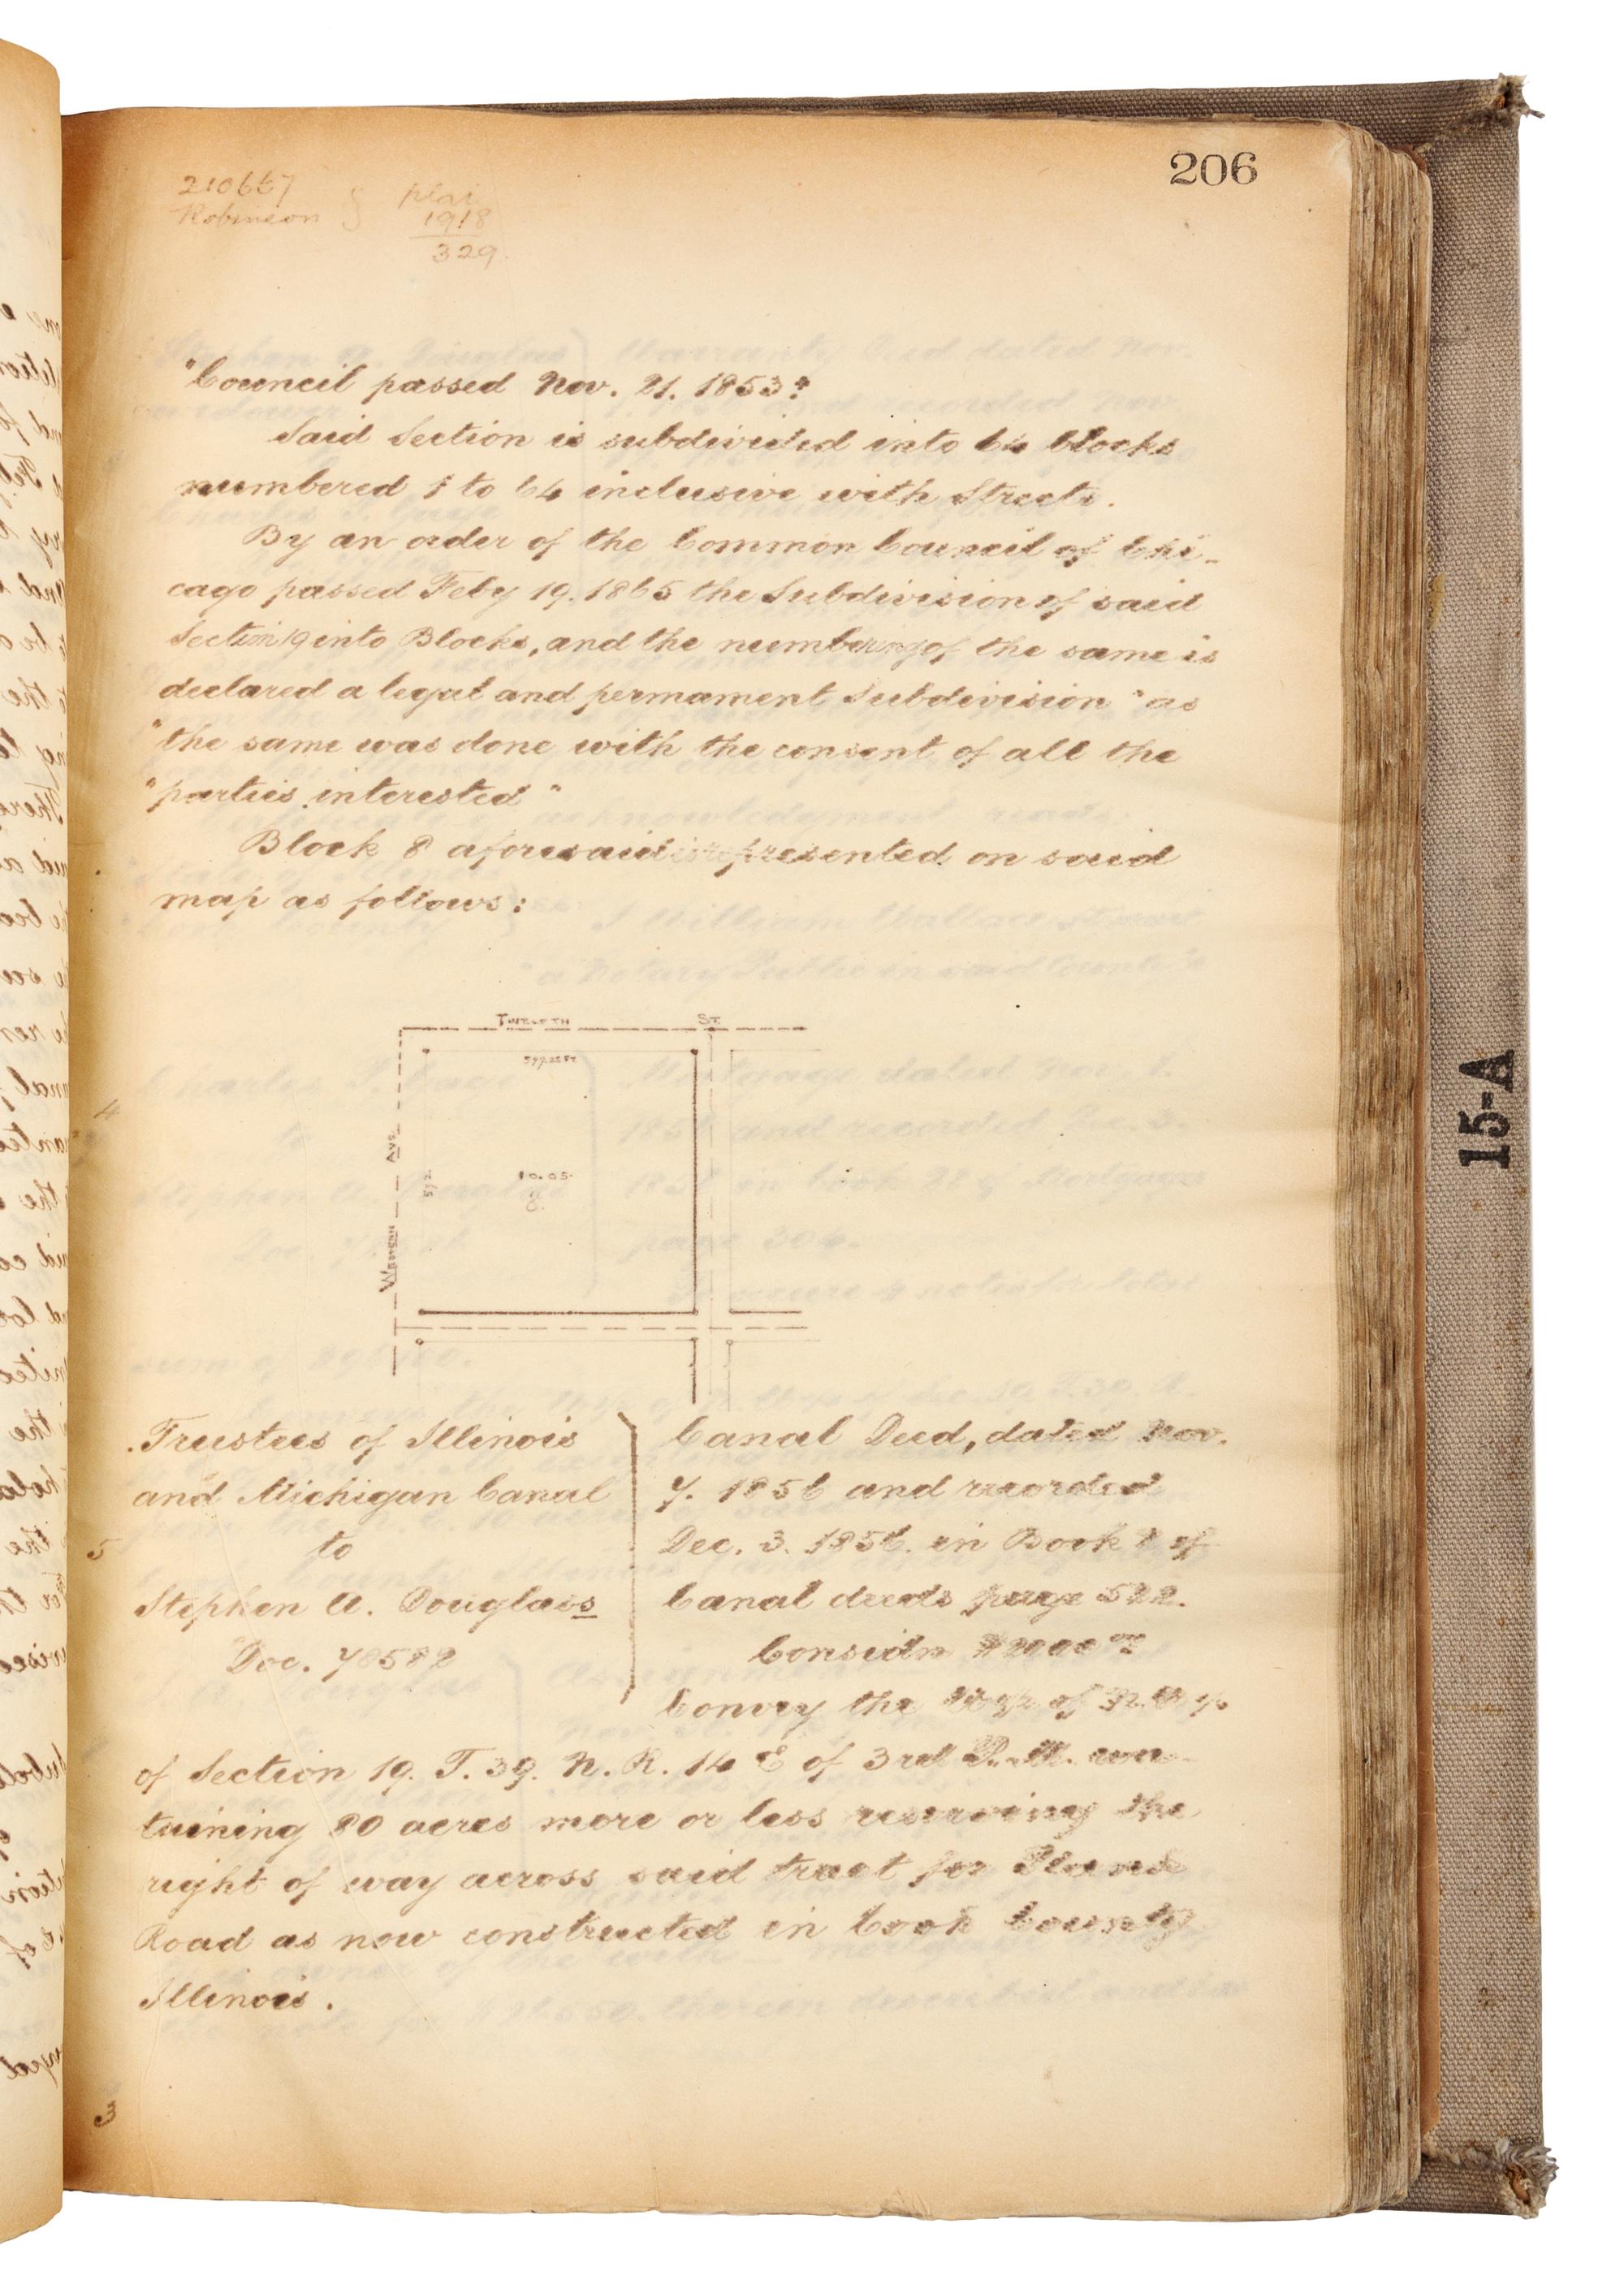 206
210667
Robinson } plai
1918
329.
"Council passed Nov. 21. 1853"
Said Section is subdivided into 64 blocks
numbered 1 to 64 inclusive with Streets.
By an order of the Common Council of Chi-
cago passed Feby 19. 1865 the Subdivision of said
Section 19 into Blocks, and the numbering of the same is
declared a legal and permament Subdivision "as
"the same was done with the consent of all the
"parties interested"
Block 8 aforesaid is represented on said
map as follows:
Twelfth St.
Western Ave.
572
10.05
8.
4
Trustees of Illinois
and Michigan Canal
to
Stephen A. Douglass
Doc. 78582
5
Canal Deed, dated Nov.
7. 1856 and recorded
Dec. 3. 1856. in Book of
Canal deeds page 522.
Considn $2000
Convey the of
of Section 19. T. 39. N. R. 14 E of 3rd P. M. con-
taining 80 acres more or less reserving the
right of way across said tract for Plank
Road as now constructed in Cook County
Illinois.
15-A